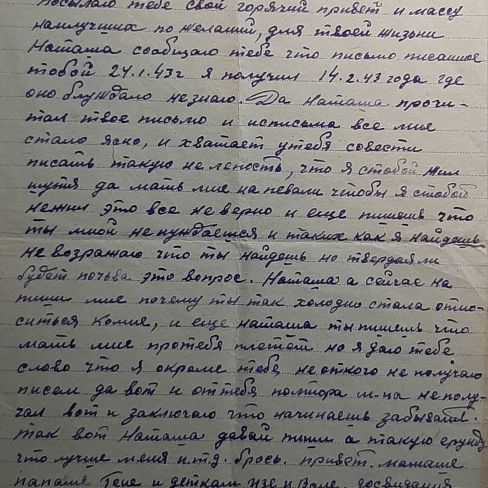 Посылаю тебе свой горячий привет и массу
наилучших по желаний, для твоей жизни
Наташа сообщаю тебе что письмо писанное
тобой 24.1.43г я получил 14.2.43 года где
оно блуждало незнаю. Да Наташа прочи-
тал твое письмо и исписьма все мне
стало ясно, и хватает утебя совести
писать такую не лепость, что я стобой жил
шутя да мать мне на певали чтобы я стобой
нежил это все не верно и еще пишешь что
ты мной не нуждаешся и таких как я найдешь
не возражаю что ты найдешь но твердая ли
будет почьва это вопрос. Наташа а сейчас на
пиши мне почему ты так холодно стала отно-
ситься комне, и еще Наташа ты пишешь что
мать мне протебя плетет но я даю тебе
слово что я окроме тебя не откого не получаю
писем да вот и оттебя полтора м-ца не полу-
чал вот и заключаю что начинаешь забывать.
так вот Наташа давай пиши а такую ерунду
что лучше меня и.т.д. брось. привет. мамаше
папаше Гене и деткам Изе и Вале. досвидания